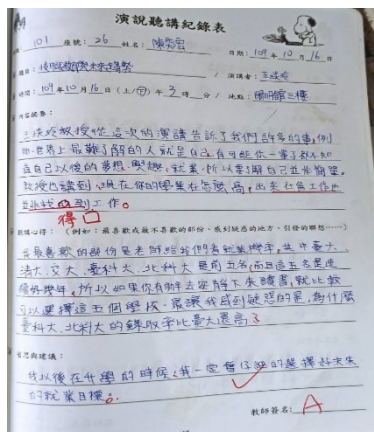 演說聽講紀錄表
101 座號：26 姓名：陳
日期：109年10月16日
題目：
時間：109年10月16日（上/下）午3時 分／地點：三樓
內容摘要：
教授從這次的演講告訴了我們許多的事，例
如世界上最難了解的人就是自己，有可能你一輩子都不知
道自己以後的夢想、興趣、就業，所以要了解自己並非簡單。
教授也講到，現在你的學業在怎麼高，出來社會工作也
找 到工作。
得
聽講心得：（例如：最喜歡或最不喜歡的部份、感到疑惑的地方、引發的聯想……）
我最喜歡的部份是老師給我們看就業機率，其中臺大、
清大、交大、臺科大、北科大是前五名，而且這五名是連
續好幾年，所以如果你有辦法安靜下來讀書，就比較
可以選擇這五個學校。最讓我感到疑惑的是，為什麼
臺科大、北科大的錄取率比臺大還高？
省思與建議：
我以後在升學的時候，我一定會仔細的選擇好未來
的就業目標。
教師簽名：A